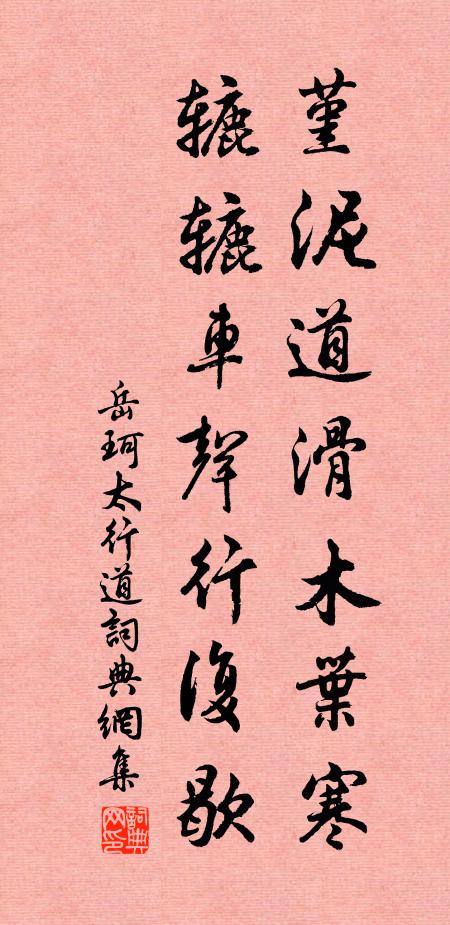 堇泥道滑木葉寒
轆轆車聲行復歇
岳珂太行道詞典網集
詞典网印